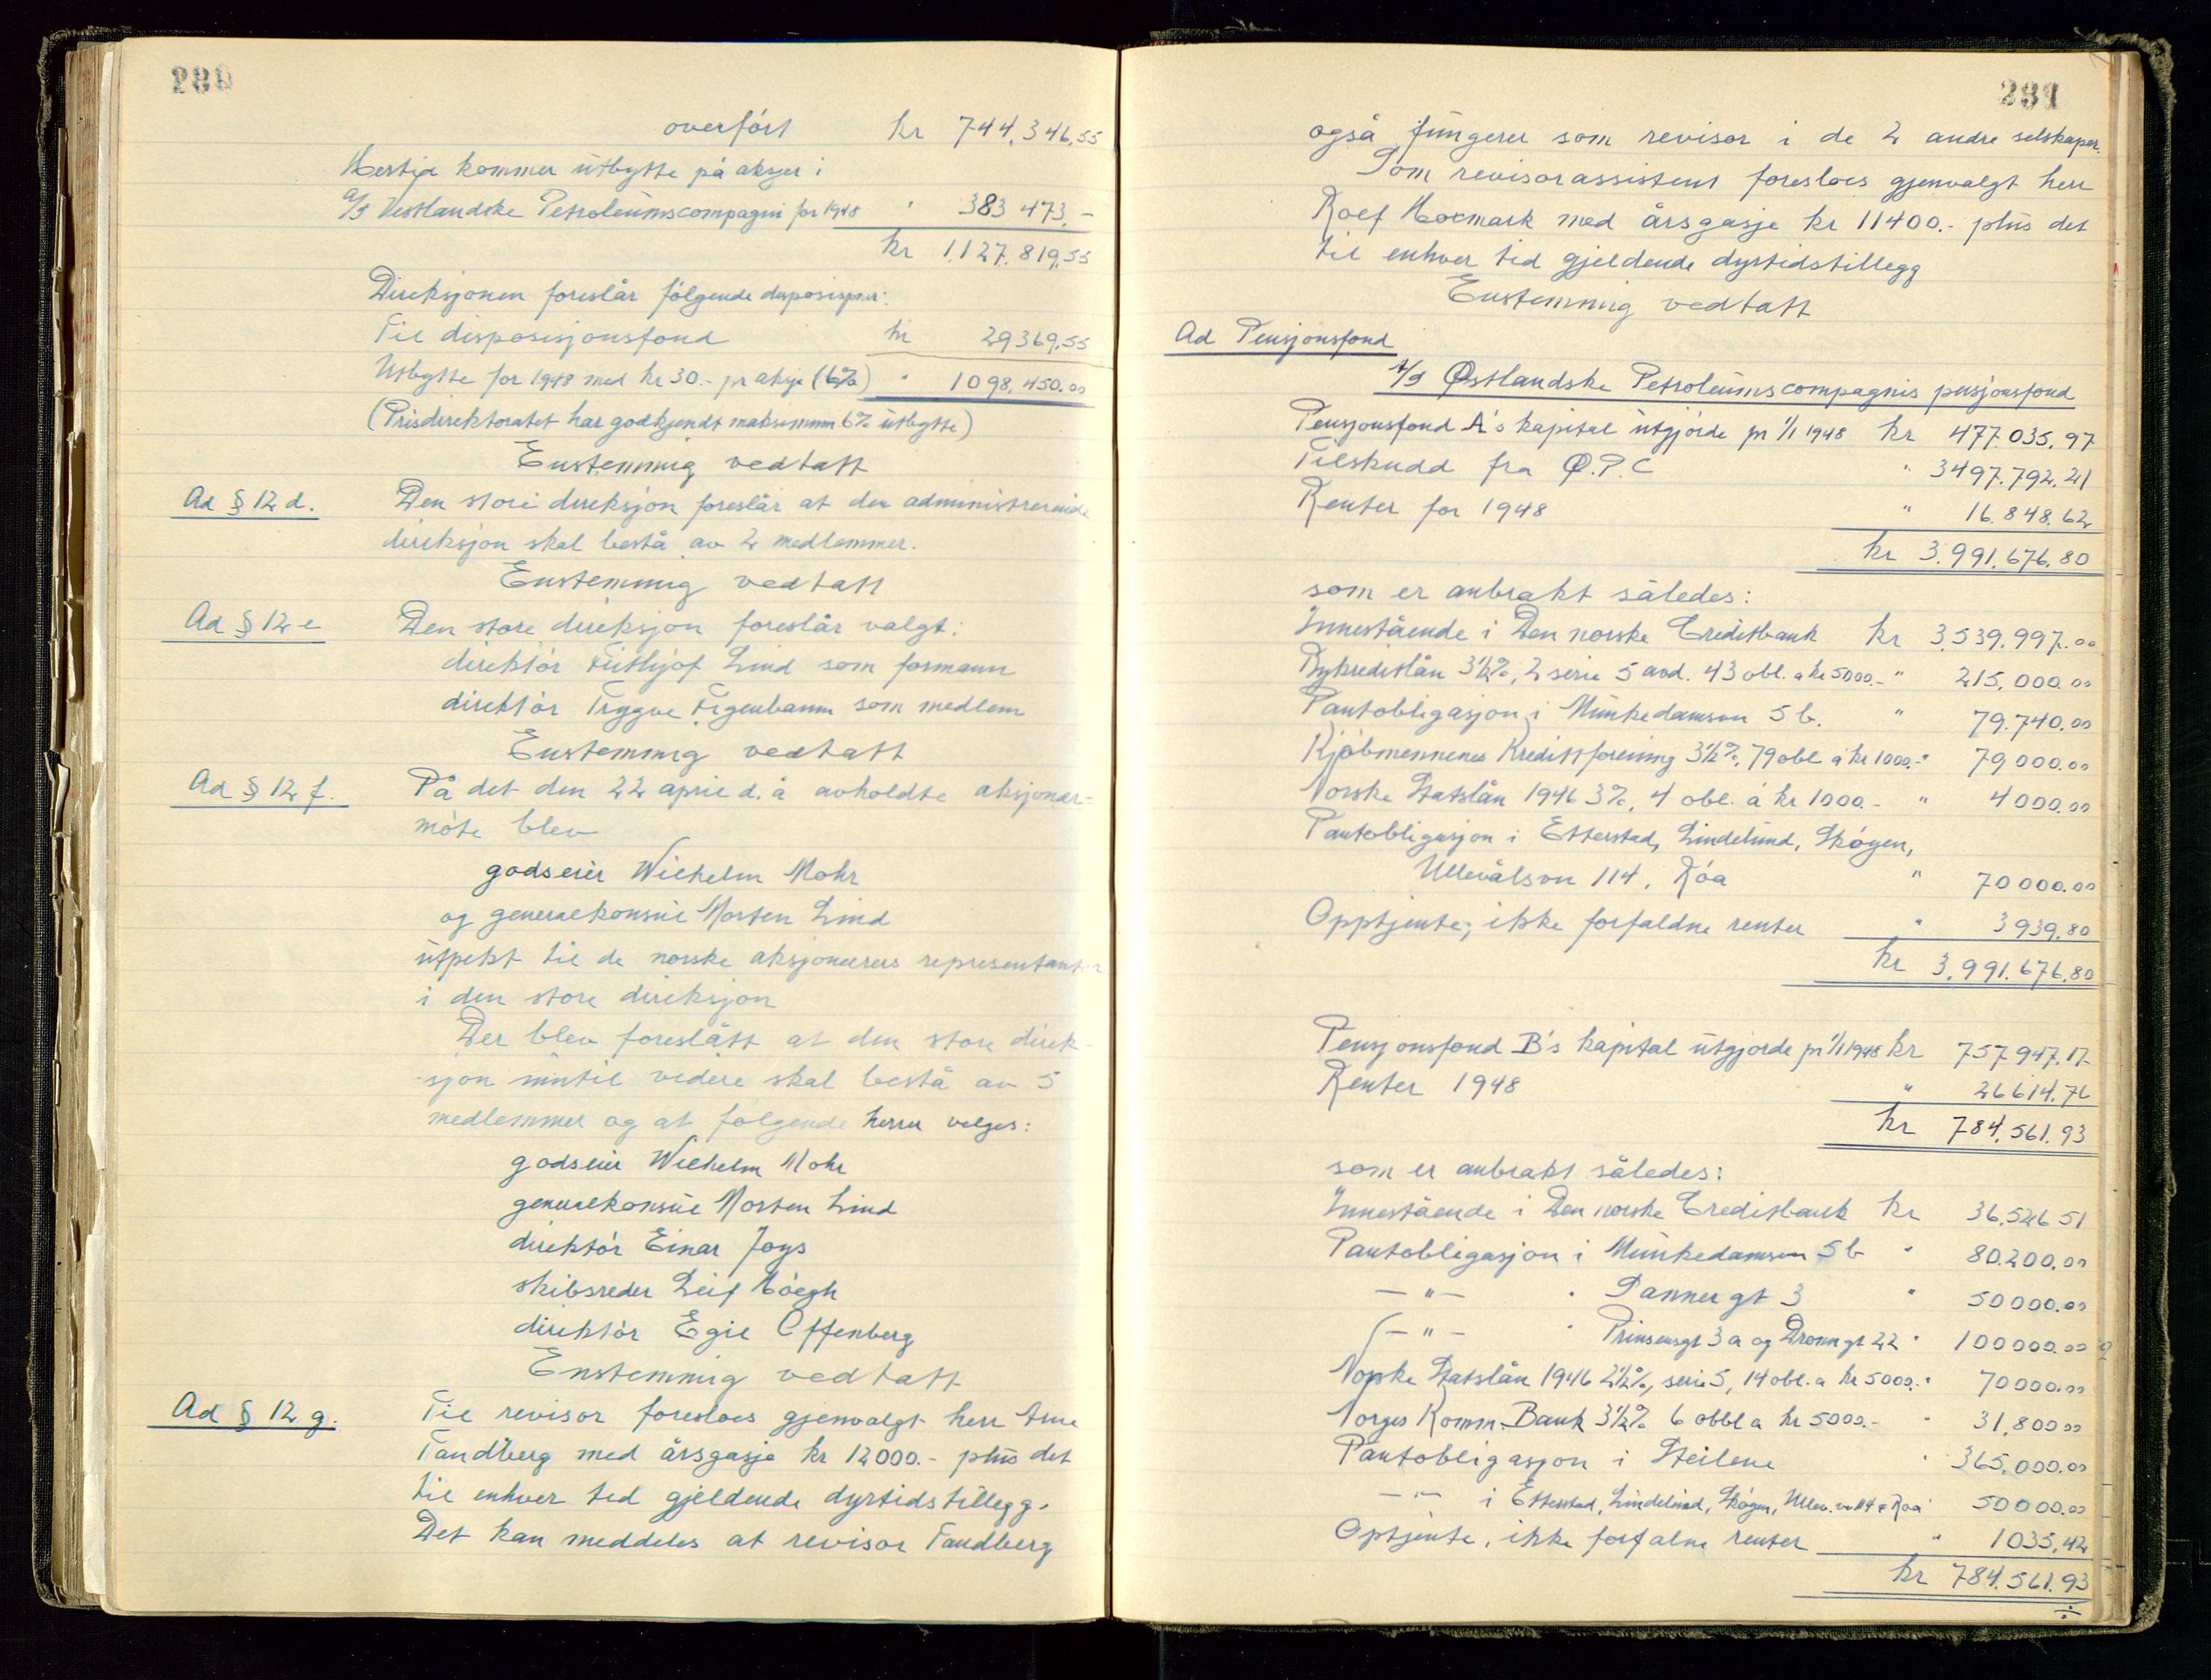 280
overført kr 744.346,55
Hertil kommer utbytte på aksjer i
A/S Vestlandske Petroleumscompagni for 1948 " 383 473.-
kr 1.127.819,55
Direksjonen foreslår følgende disposisjoner:
Til disposisjonsfond kr 29369,55
Utbytte for 1948 med kr 30.- pr aksje (6%) " 1098.450.00
(Prisdirektoratet har godkjendt maksimum 6% utbytte)
Enstemmig vedtatt
Ad § 12 d. Den store direksjon foreslår at den administrerende
direksjon skal bestå av 2 medlemmer.
Enstemmig vedtatt
Ad § 12 e Den store direksjon foreslår valgt:
direktør Frithjof Lind som formann
direktør Trygve Figenbaum som medlem
Enstemmig vedtatt
Ad § 12 f. På det den 22 april d. å avholdte aksjonær=
møte blev
godseier Wilhelm Mohr
og generalkonsul Morten Lind
utpekt til de norske aksjonærers representanter
i den store direksjon
Der blev foreslått at den store direk-
-sjon inntil videre skal bestå av 5
medlemmer og at følgende herrer velges:
godseier Wilhelm Mohr
generalkonsul Morten Lind
direktør Einar Joys
skibsreder Leif Höegh
direktør Egil Offenberg
Enstemmig vedtatt
Ad § 12 g. Til revisor foresloes gjenvalgt herr Arne
Tandberg med årsgasje kr 12000.- plus det
til enhver tid gjeldende dyrtidstillegg.
Det kan meddeles at revisor Tandberg
281
også fungerer som revisor i de 2 andre selskaper.
Som revisorassistent foresloes gjenvalgt herr
Rolf Hoxmark med årsgasje kr 11400.- plus det
til enhver tid gjeldende dyrtidstillegg
Enstemmig vedtatt
Ad Pensjonsfond
A/S Østlandske Petroleumscompagnis pensjonsfond
Pensjonsfond A's kapital utgjorde pr 1/1 1948 kr 477.035,97
Tilskudd fra Ø.P.C " 3497.792.21
Renter for 1948 " 16.848.62
kr 3.991.676.80
som er anbrakt således:
Innestående i Den norske Creditbank kr 3.539.997.00
Bykredittlån 3 1/2%, 2 serie 5 avd. 43 obl. a kr 5000.- " 215.000.00
Pantobligasjon i Munkedamsvn 5 b. " 79.740.00
Kjøbmennenes Kredittforening 3 1/2%, 79 obl á kr 1000.- " 79000.00
Norske Statslån 1946 3%, 4 obl. á kr 1000.- " 4000.00
Pantobligasjon i Etterstad, Lindelund, Skøyen,
Ullevålsvn 114, Røa " 70000.00
Opptjente, ikke forfaldne renter " 3939.80
kr 3.991.676.80
Pensjonsfond B's kapital utgjorde pr 1/1 1948 kr 757.947.17
Renter 1948 " 26614.76
kr 784.561.93
som er anbrakt således:
Innestående i Den norske Creditbank kr 36.526 51
Pantobligasjon i Munkedamsvn 5 b " 80.200.00
— " — " Sannergt 3 " 50000.00
— " — " Prinsensgt 3 a og Dronn gt 22 " 100000.00
Norske Statslån 1946 2 1/2%, serie 5, 14 obl. a kr 5000.- " 70000.00
Norges Komm. Bank 3 1/2% 6 obbl a kr 5000.- " 31,800 00
Pantobligasjon i Steilene " 365.000.00
— " — i Etterstad, Lindelund, Skøyen, Ullev.vn 114 & Røa " 50000.00
Optjente, ikke forfalne renter " 1035,42
kr 784.561.93